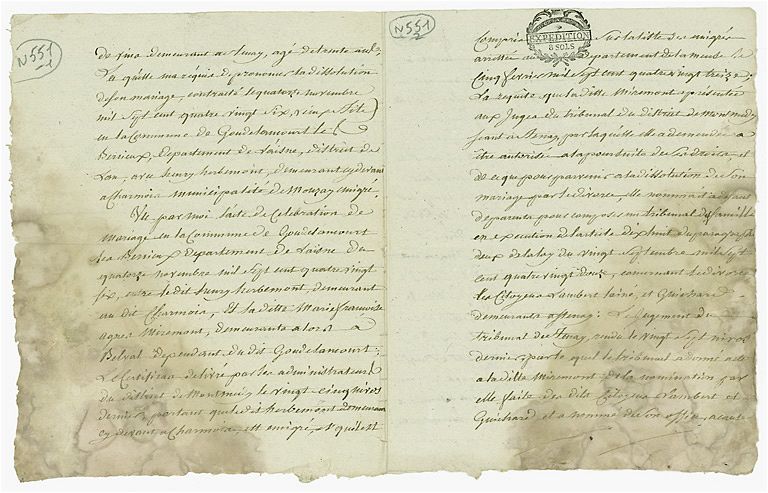 N 551
1
de lino demeurant a Stenay, agé de trente ans,
Laquelle ma requis de prononcer la dissolution
de son mariage, contracté le quatorze novembre
mil sept cent quatre vingt six,
en la Commune de Goudelancourt les
Berrieux, Departement de Laisne, district de
Laon, avec henry herbemont, demeurant cy devant
a Charmois municipalité de Mouzay, emigré.
Vu par moi l'acte de Celebration de
Mariage en la Commune de Goudelancourt
les Berrieux departement de Laisne du
quatorze novembre mil sept cent quatre vingt
six, entre ledit henry herbemont, demeurant
au dit Charmois, Et la ditte Marie françoise
agnes Miremont, demeurante alors a
Belval dependant du dit Goudelancourt;
Le Certificat delivré par les administrateurs
du district de Montmedy le vingt cinq nivos
dernier portant que ledit herbemont demeurant
cy devant a Charmois, est emigré, et qu'il est
N 551
2
EXPEDITION
8 SOLS
Compris sur la liste des emigrés
arrettée au departement de la meuse le
Cinq fevrier mil sept cent quatre vingt treize;
La requête que la ditte Miremont a presentée
aux Juges du tribunal du district de Montmedy
seant a Stenay, par laquelle elle a demandé a
être autorisée a la poursuite de ses droits, et
de ce que pour parvenir a la dissolution de son
mariage par le divorce, elle nommait a defaut
de parents pour composer un tribunal de famille
en execution de l'article dix huit du paragraphe
deux de la loy du vingt septembre mil sept
cent quatre vingt douze, concernant le divorce
Les Citoyens Lambert lainé, et Guichard
demeurants a Stenay: Le Jugement du
tribunal de Stenay, rendu le vingt sept nivos
dernier par le quel le tribunal a donné acte
a la ditte Miremont de la nomination par
elle faite des dits Citoyens Lambert et
Guichard et a nommé de son office, a cause